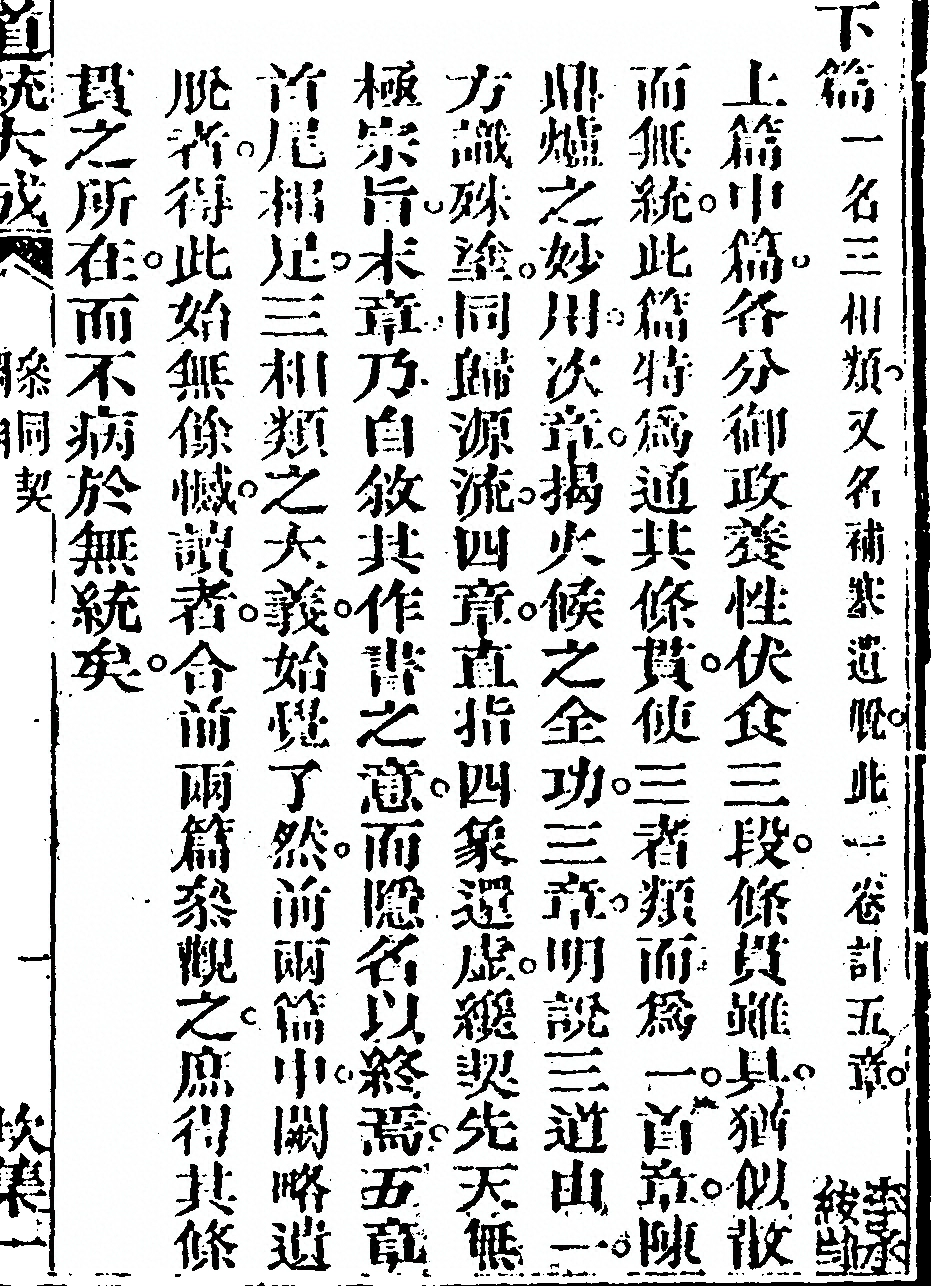 下篇一名三相類又名補塞遺脫此一卷計五章
上篇中篇各分御政養性伏食三段條貫雖具猶似散
而無統此篇特爲通其條貫使三者類而爲一首章陳
鼎爐之妙用次章揭火候之全功三章明說三道由一
方識殊塗同歸源流四章直指四象還虛纔契先天無
極宗旨末章乃自敘其作書之意而隱名以終焉五章
首尾相足三相類之大義始覺了然前兩篇中闕略遺
脫者得此始無餘憾讀者合前兩篇叅觀之庶得其條
貫之所在而不病於無統矣
道統大成
叅同契
一
坎集一